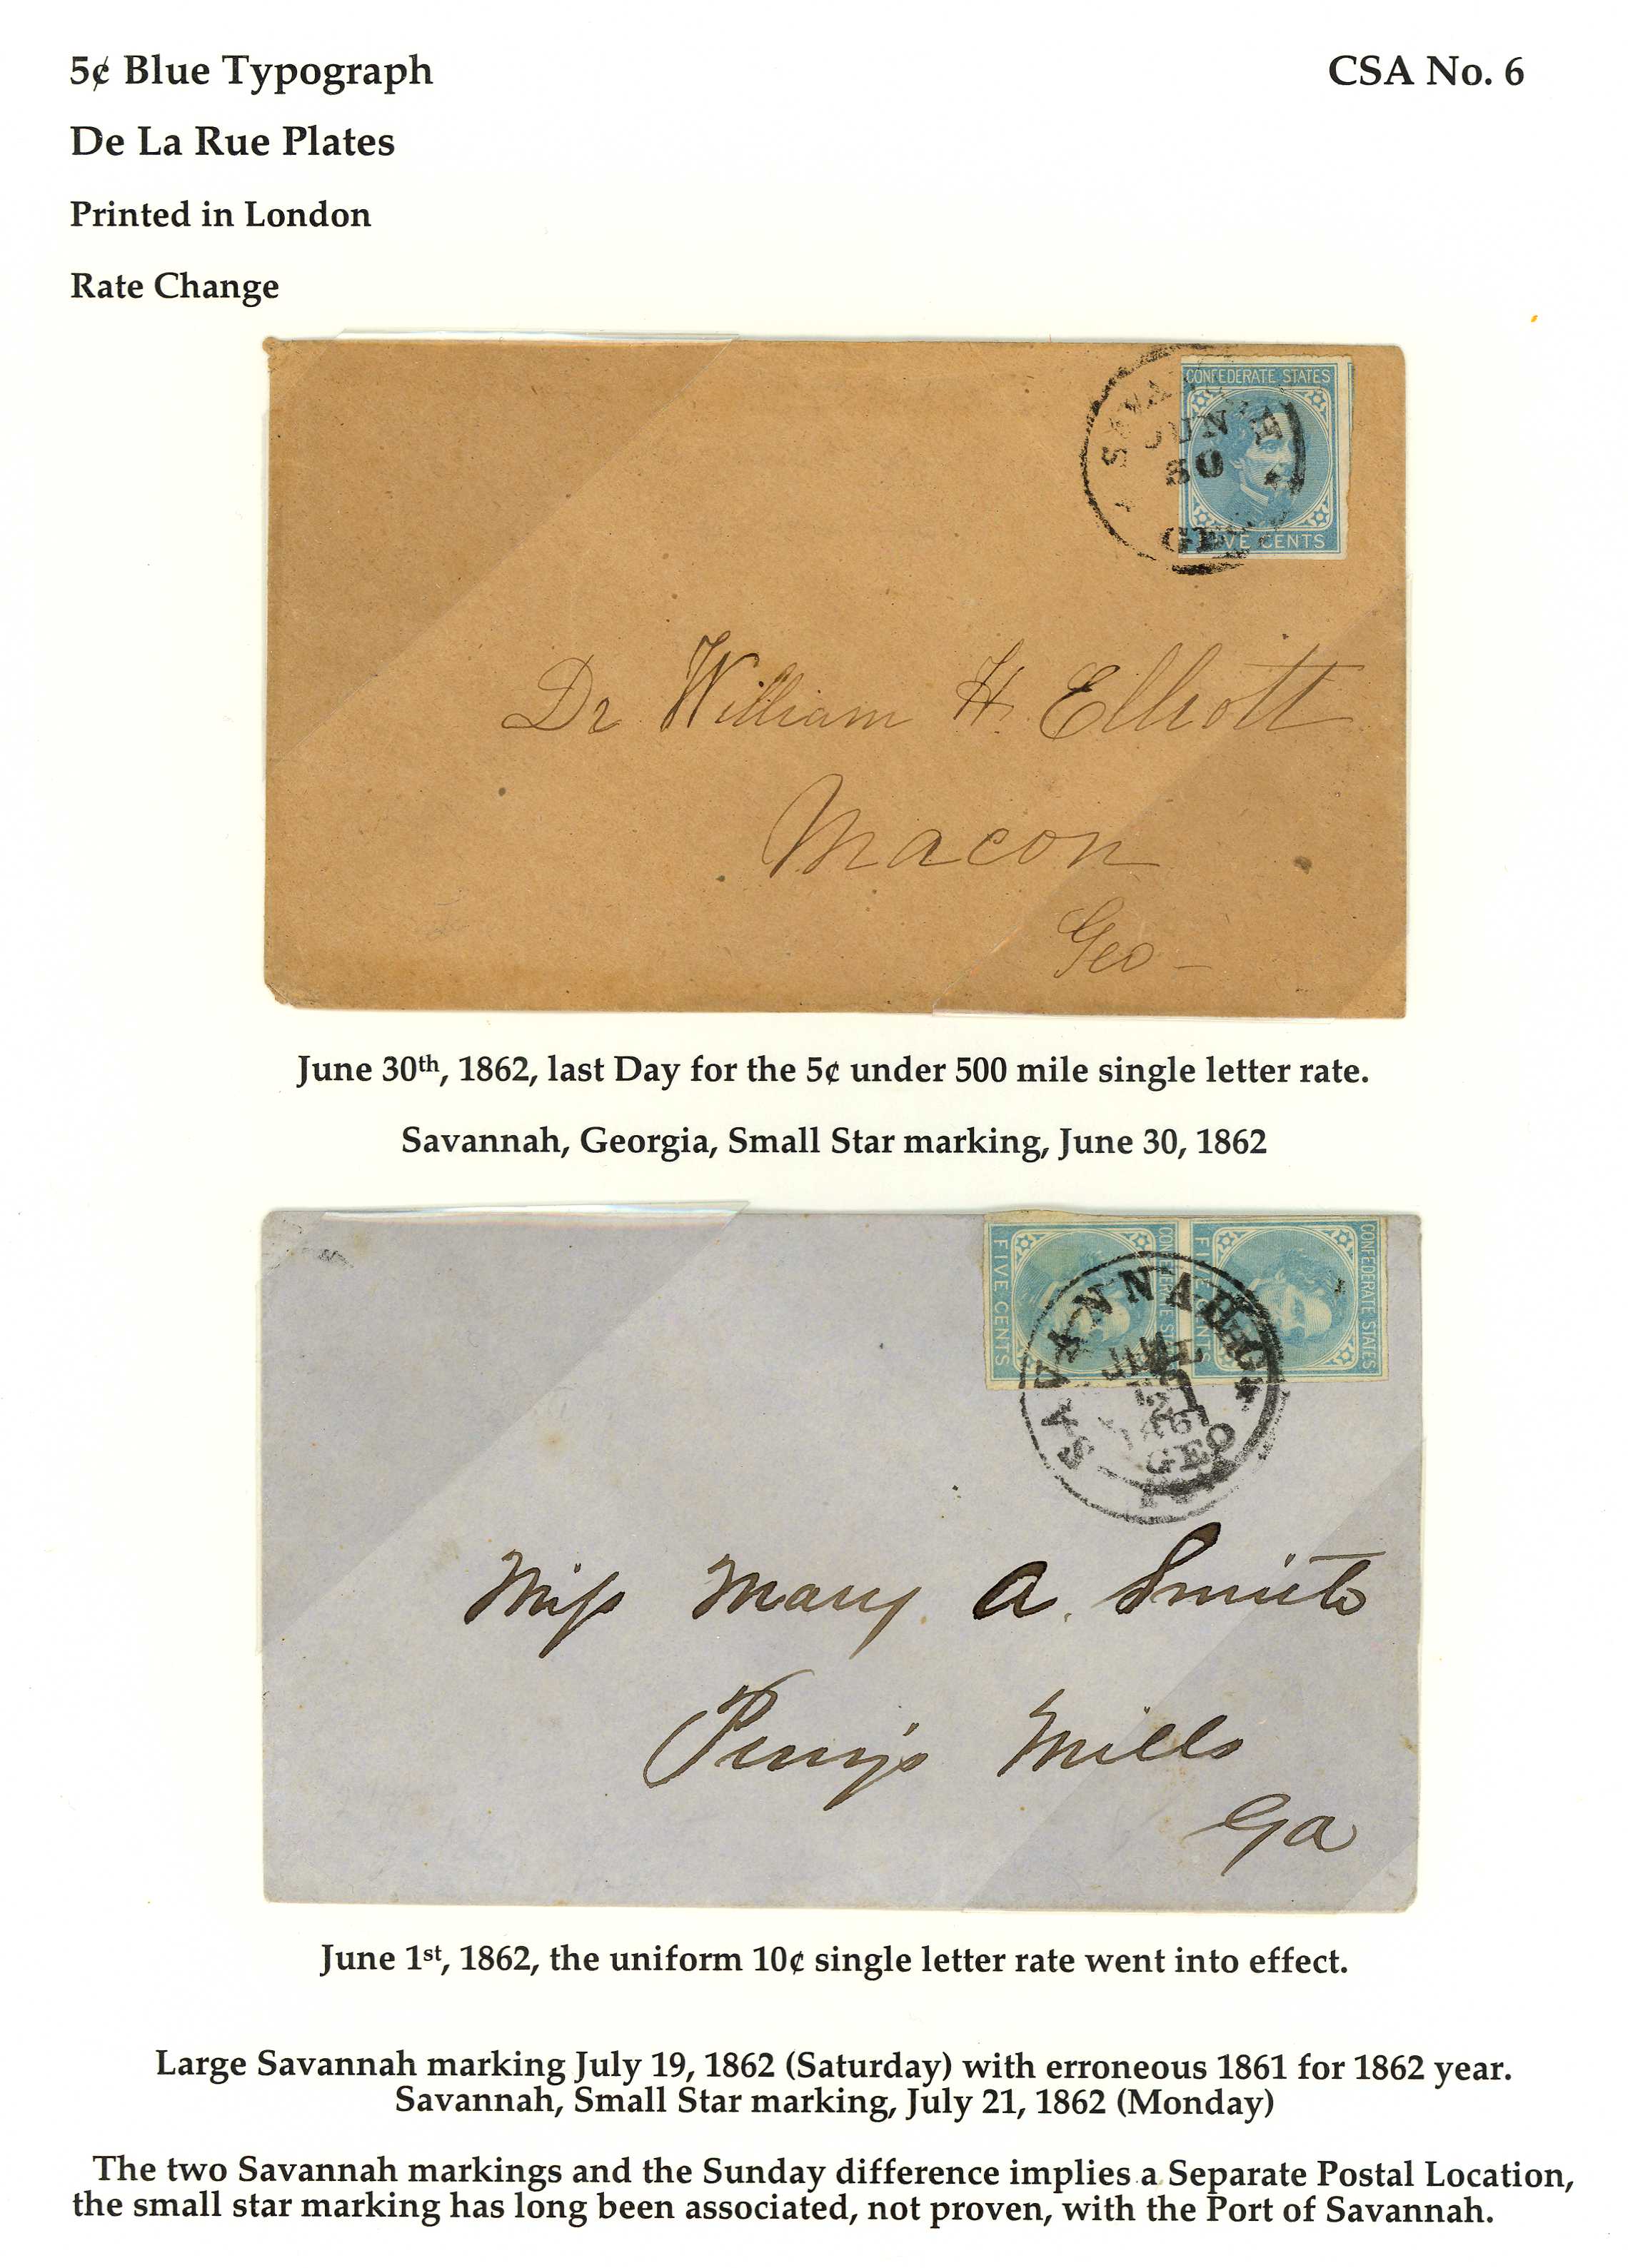 5¢ Blue Typograph
CSA No. 6
De La Rue Plates
Printed in London
Rate Change
CONFEDERATE STATES
JUN
30
GEO
FIVE CENTS
Dr William H. Elliott
Macon
Geo-
June 30th, 1862, last Day for the 5¢ under 500 mile single letter rate.
Savannah, Georgia, Small Star marking, June 30, 1862
FIVE CENTS
CONFEDERATE STATES
FIVE CENTS
CONFEDERATE STATES
SAVANNAH
JUL
GEO
Miss Mary A. Smith
Perry's Mills
Ga
June 1st, 1862, the uniform 10¢ single letter rate went into effect.
Large Savannah marking July 19, 1862 (Saturday) with erroneous 1861 for 1862 year.
Savannah, Small Star marking, July 21, 1862 (Monday)
The two Savannah markings and the Sunday difference implies a Separate Postal Location,
the small star marking has long been associated, not proven, with the Port of Savannah.